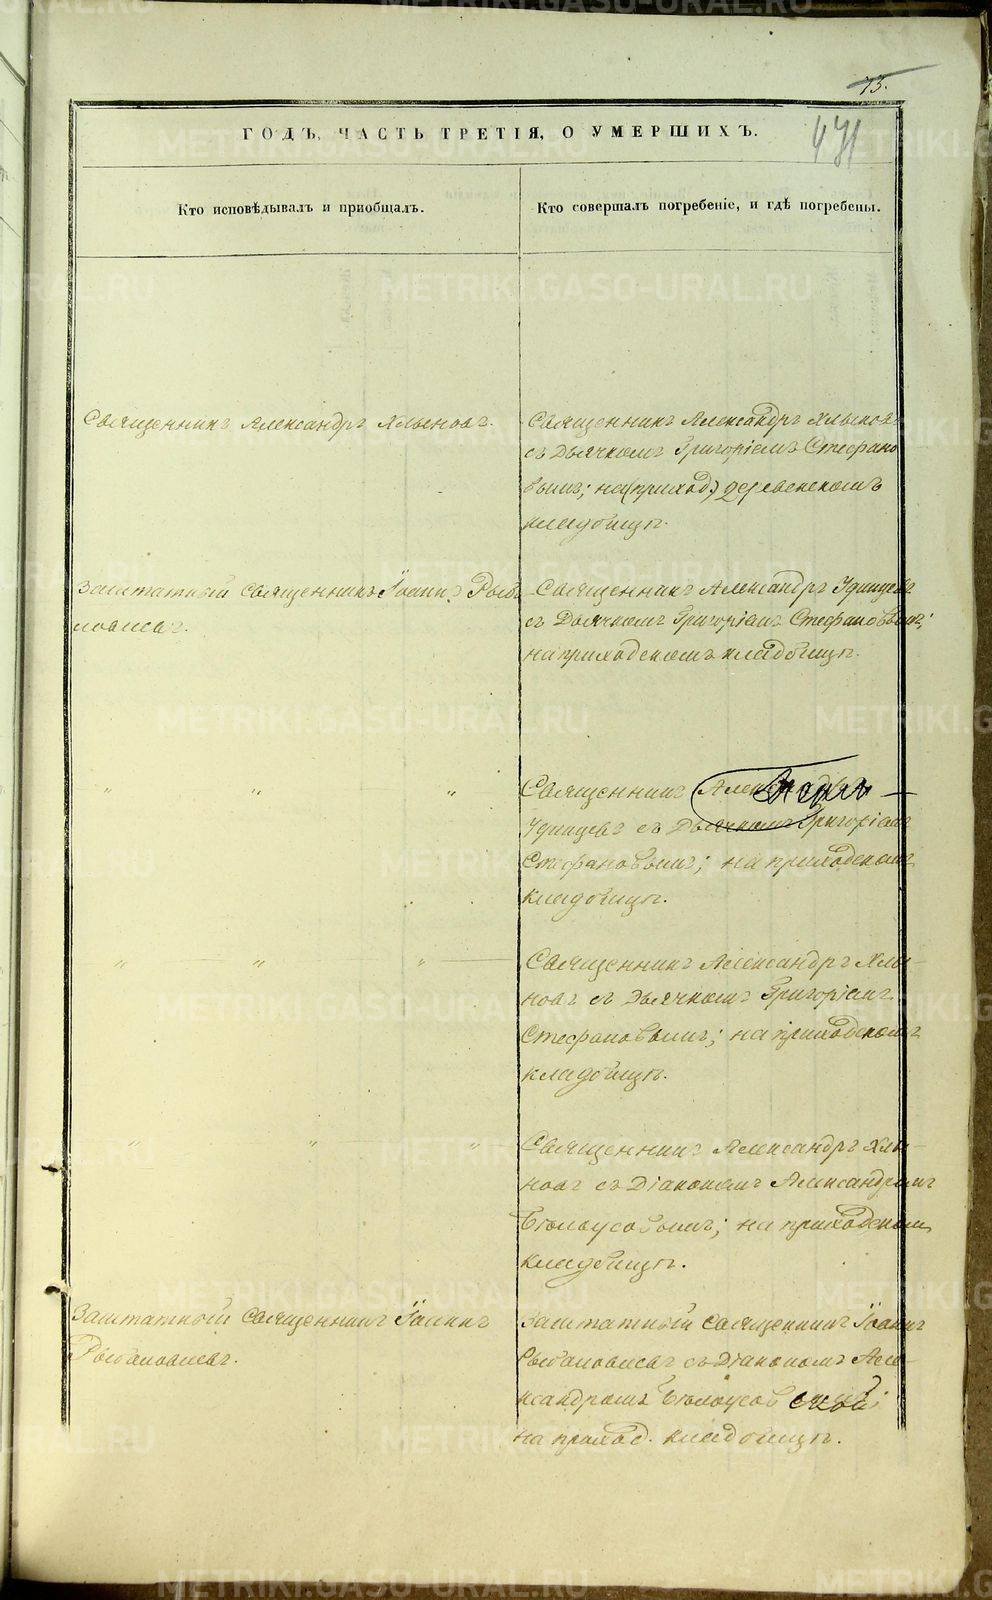 75.
471
ГОДЪ, ЧАСТЬ ТРЕТІЯ, О УМЕРШИХЪ.
Кто исповѣдывалъ и приобщалъ.
Кто совершалъ погребеніе, и гдѣ погребены.
Священникъ Александръ Хлыновъ.
Священникъ Александръ Хлыновъ
съ Дьячкомъ Григоріемъ Стефано
вымъ; на (приход.) деревенскомъ
кладбищѣ.
Заштатный священникъ Іоаннъ Рыб
Священникъ Александръ Удинцевъ
съ Дьячкомъ Григоріемъ Стефановымъ;
на приходскомъ кладбищѣ.
" " "
Священникъ
Удинцевъ съ Дьячкомъ Григоріемъ
Стефановымъ; на приходскомъ
кладбищѣ.
" " "
Священникъ Александръ Хлы-
новъ съ Дьячкомъ Григоріемъ
Стефановымъ; на приходскомъ
кладбищѣ.
" " "
Священникъ Александръ Хлы-
новъ съ Діакономъ Александромъ
Бѣлоусовымъ; на приходскомъ
кладбищѣ.
Заштатный священникъ Іоаннъ
Заштатный священникъ Іоаннъ
съ Діакономъ Але-
ксандромъ
на приход. кладбищѣ.
METRIKI.GASO-URAL.RU